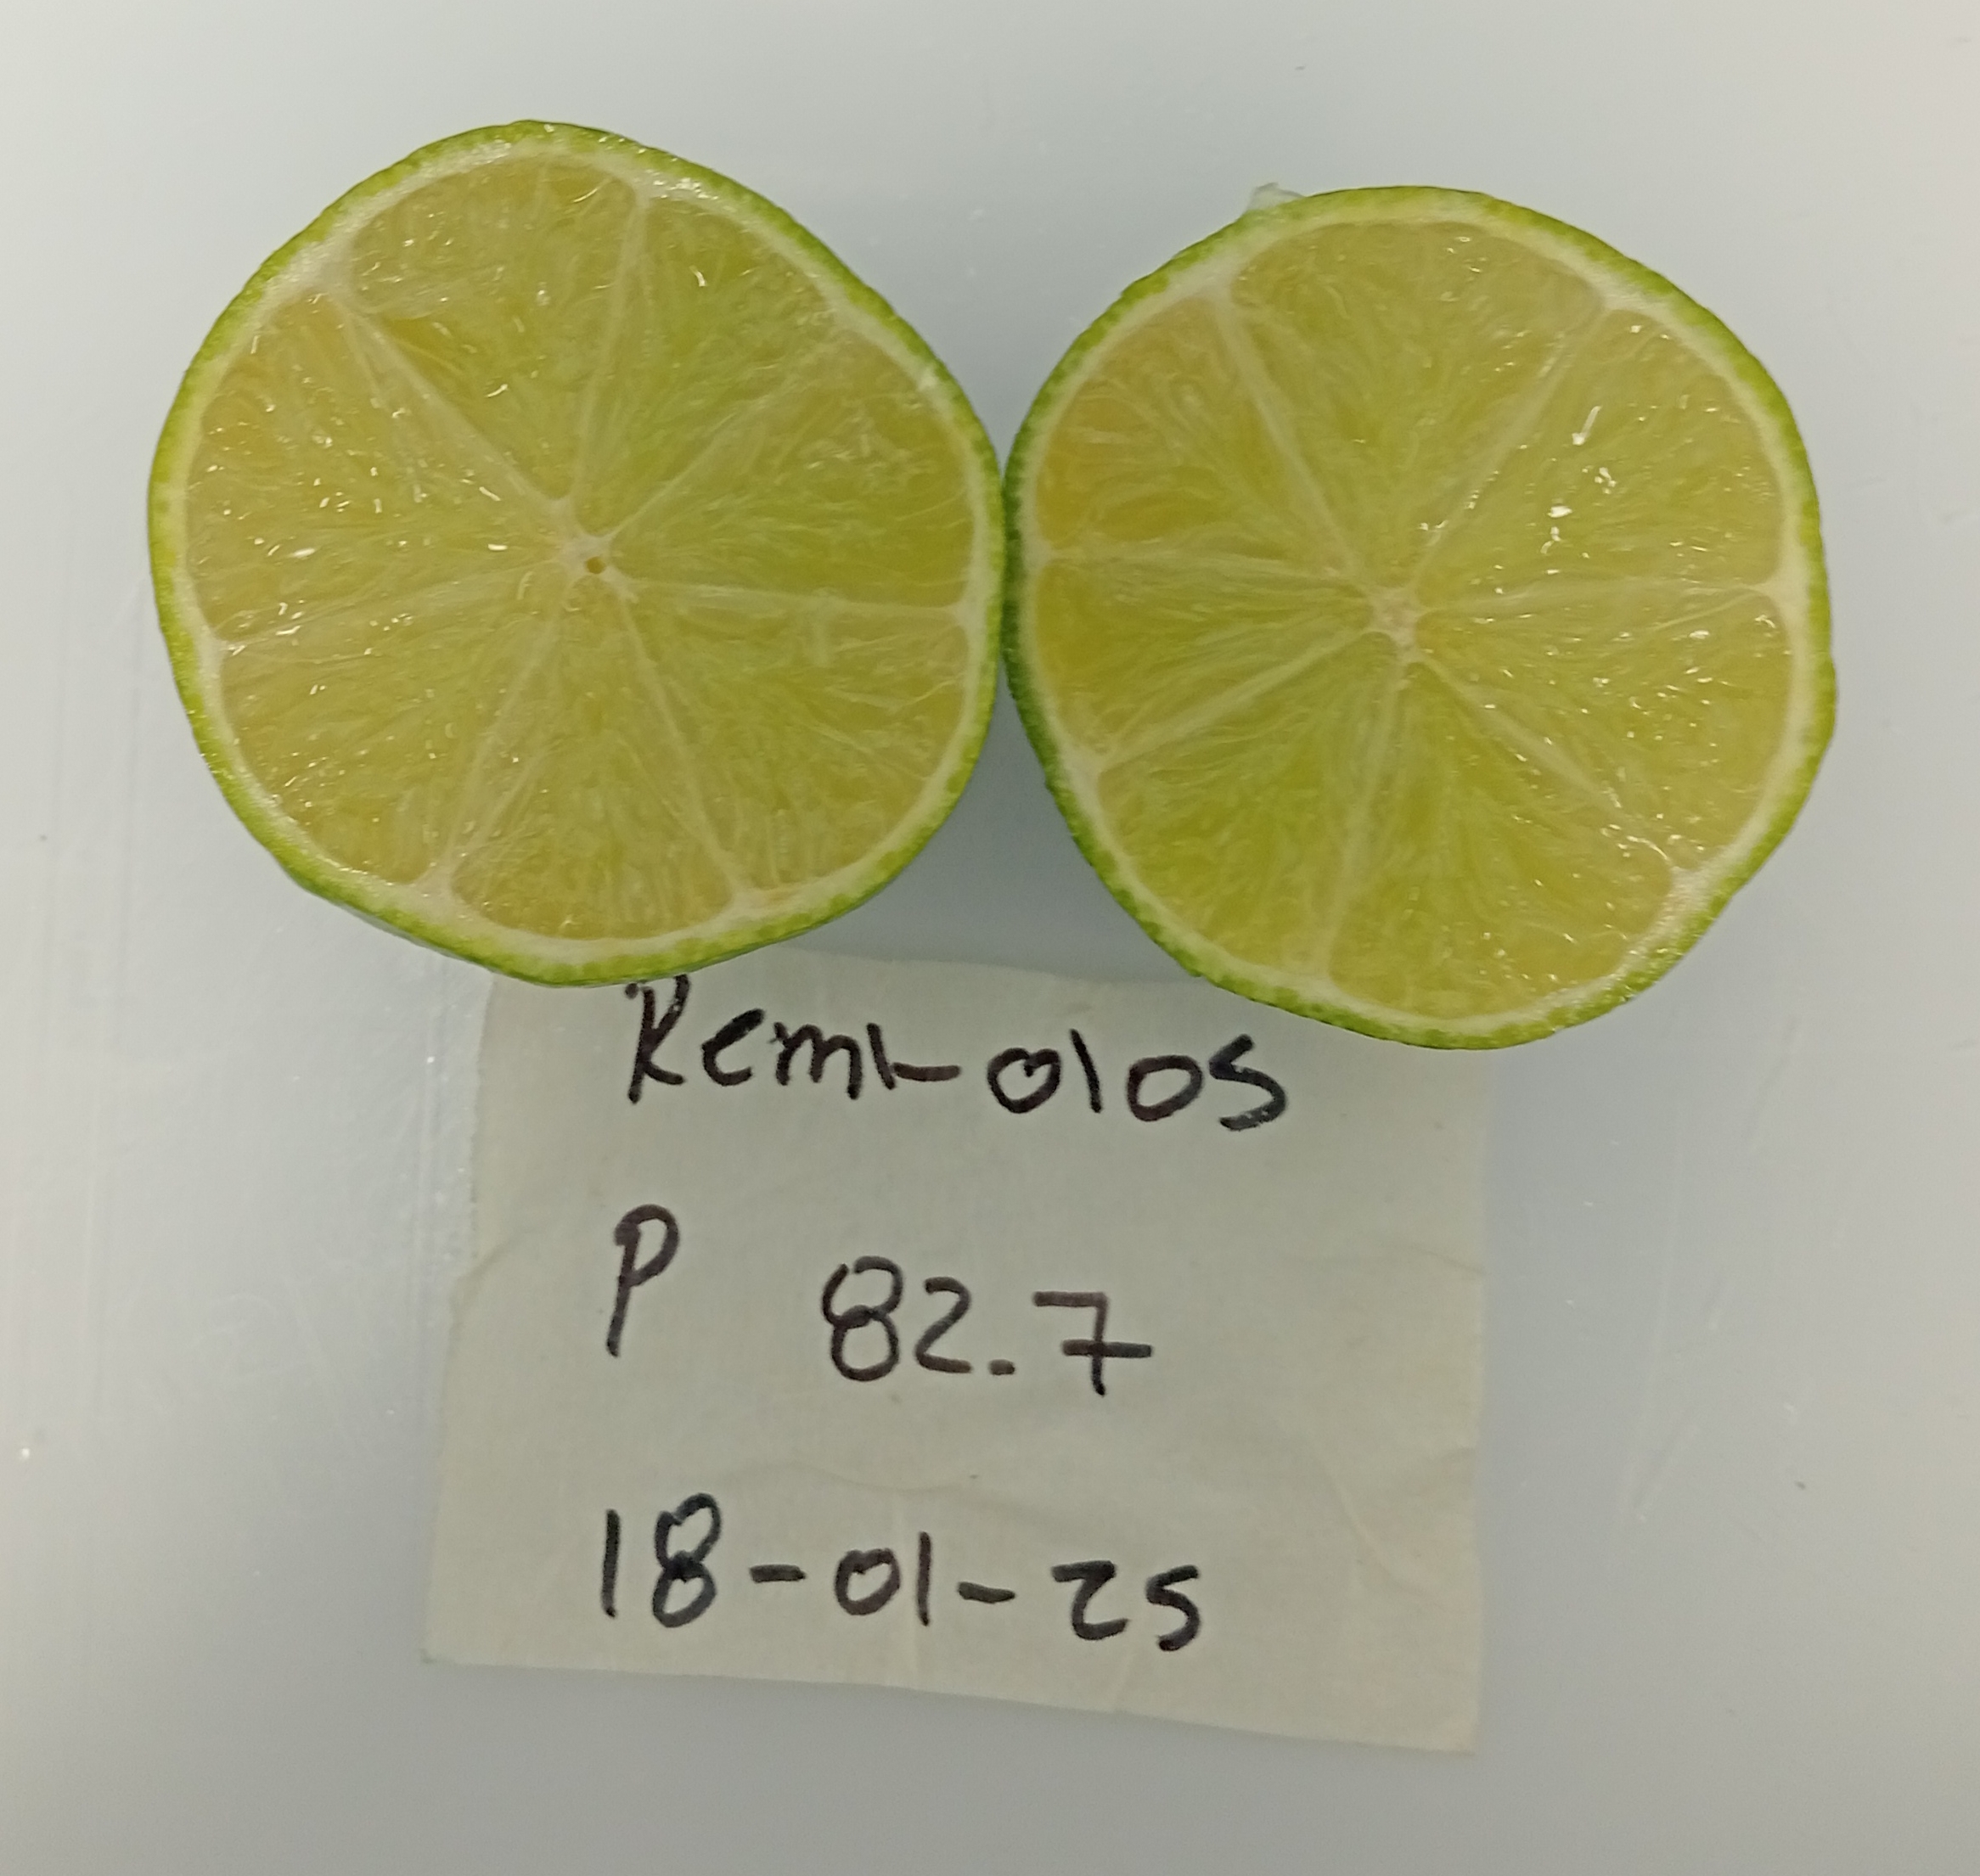 Remi-0105
P 82.7
18-01-25